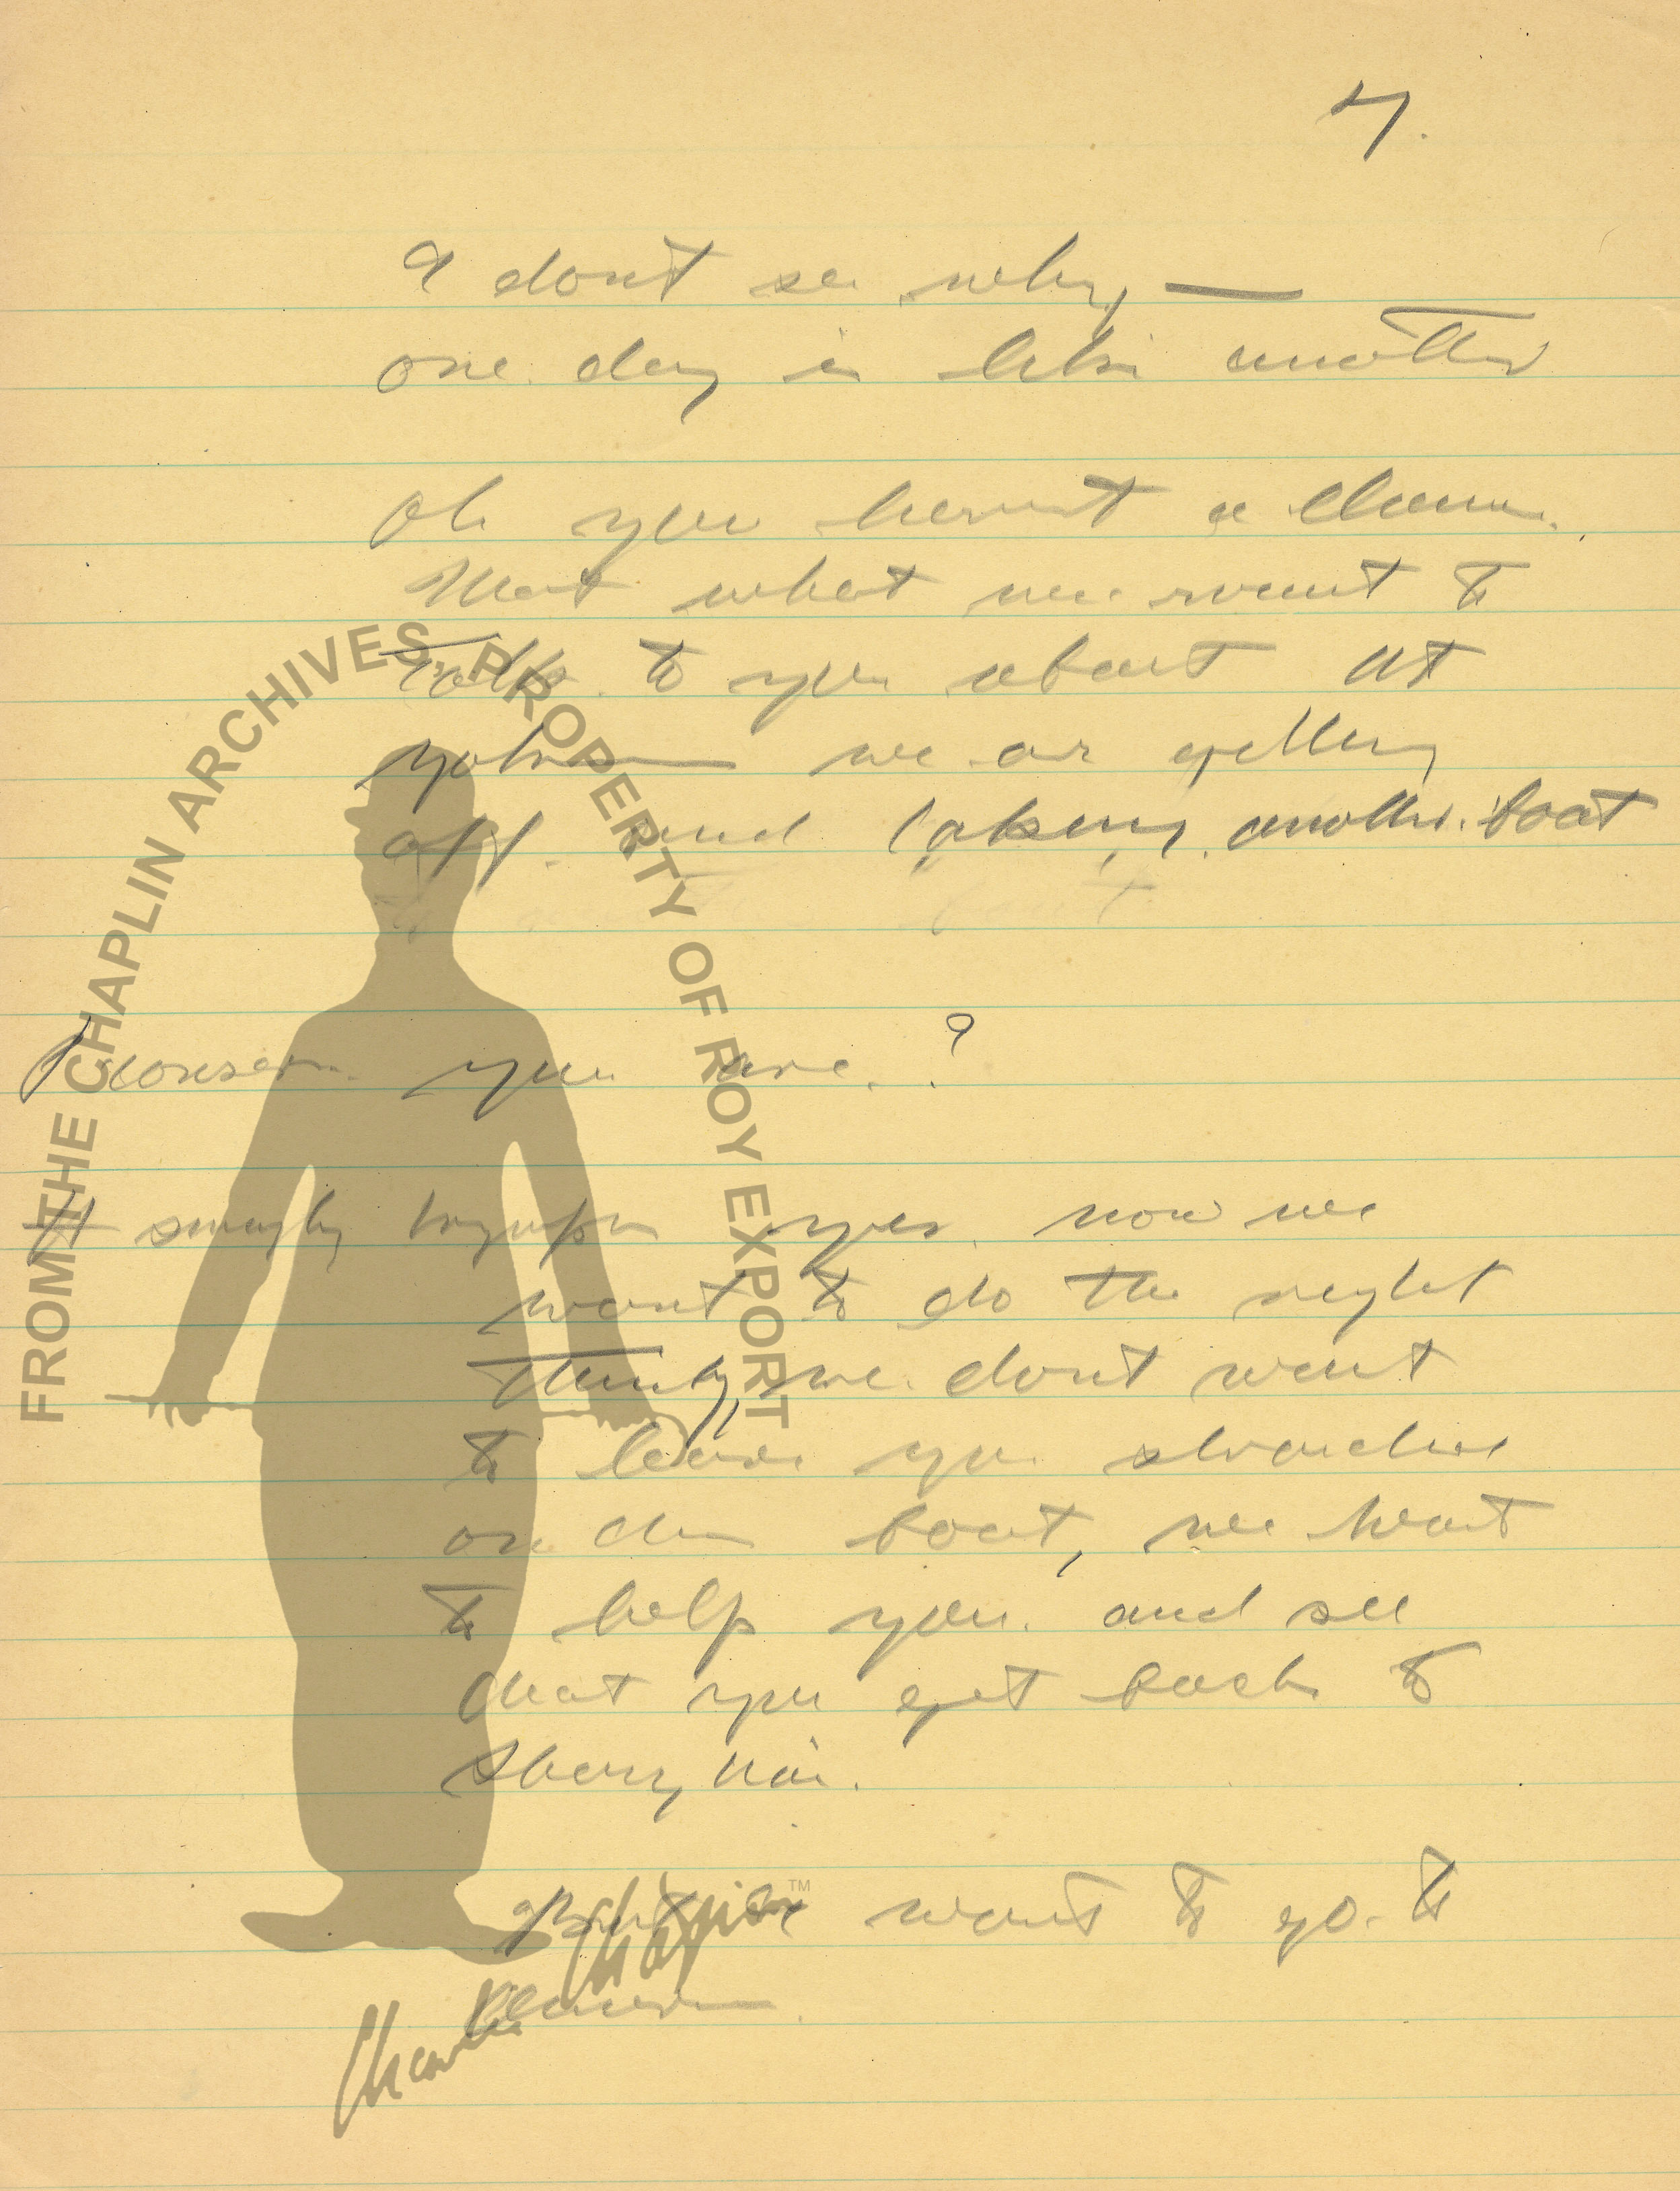 7.
I dont se why, —
one day is like another
oh you havent a
that what we want to
talk to you about at
we are getting
off and taking another boat
you are ?
yes now we
want to do the right
thing, we dont want
to leave you
on the boat, we want
to help you and see
that you get back to
want to go to
FROM THE CHAPLIN ARCHIVES, PROPERTY OF ROY EXPORT
Charlie Chaplin TM